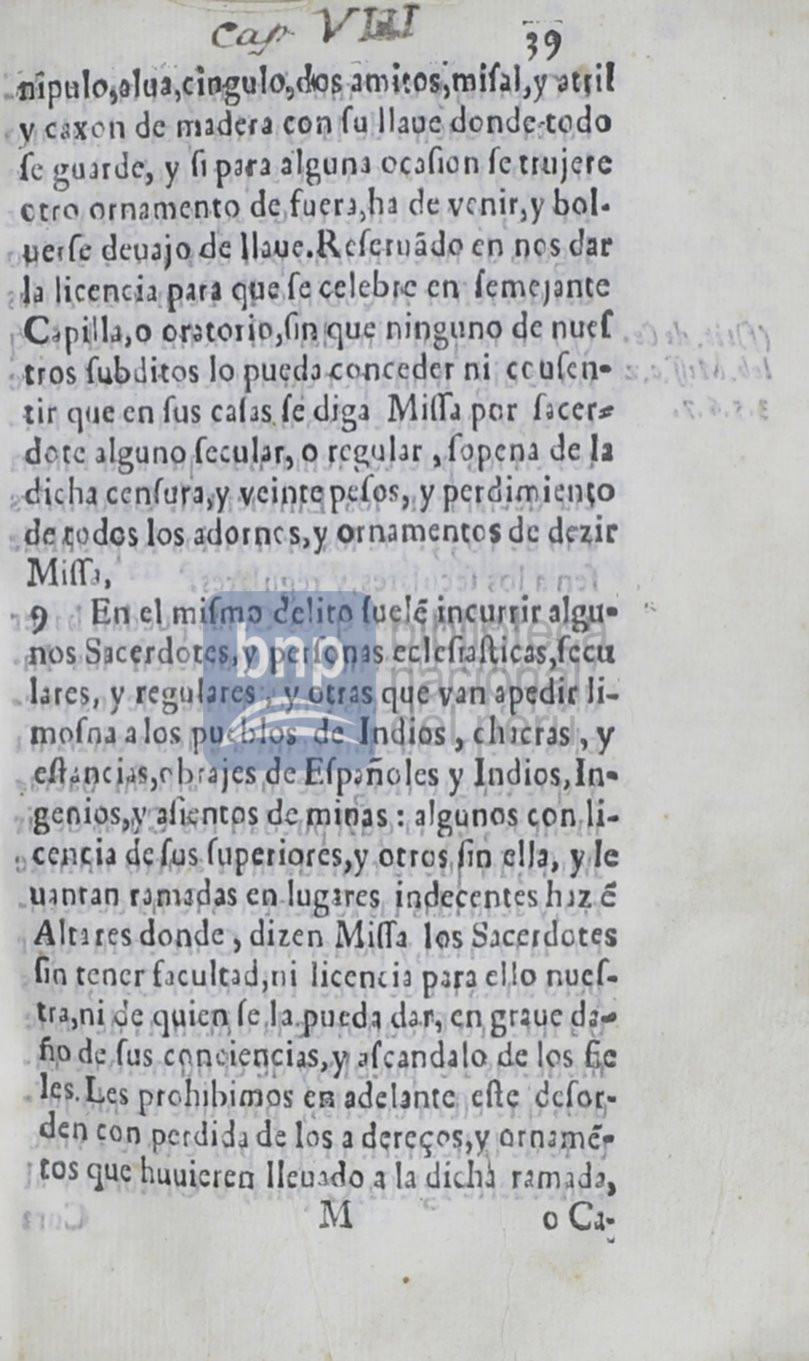 Cap VIII
39
nipulo,alua,cingulo,dos amitos,misal,y atril
y caxon de madera con ſu llaue donde todo
ſe guarde, y ſi para alguna ocaſion ſe trujere
otro ornamento de fuera,ha de venir,y bol-
uerſe deuajo de llaue.Reſeruãdo en nos dar
la licencia para que ſe celebre en ſemejante
Capilla,o oratorio,ſin que ninguno de nueſ
tros ſubditos lo pueda conceder ni conſen-
tir que en ſus caſas ſe diga Miſſa por ſacer-
dote alguno ſecular, o regular , ſopena de la
dicha cenſura,y veinte peſos, y perdimiento
de todos los adornos,y ornamentos de dezir
Miſſa,
9 En el miſmo delito ſuelẽ incurrir algu-
nos Sacerdotes,y perſonas ecleſiaſticas,ſecu
lares, y regulares , y otras que van apedir li-
moſna a los pueblos de Indios , chacras , y
eſtancias,obrajes de Eſpañoles y Indios, In-
genios,y aſientos de minas : algunos con li-
cencia de ſus ſuperiores,y otros ſin ella, y le
uantan ramadas en lugares indecentes hazẽ
Altares donde , dizen Miſſa los Sacerdotes
ſin tener facultad,ni licencia para ello nueſ-
tra,ni de quien ſe la pueda dar, en graue da-
ño de ſus conciencias,y aſcandalo de los fie
les. Les prohibimos en adelante eſte deſor-
den con perdida de los a dereços,y ornamẽ-
tos que huuieren lleuado a la dicha ramada,
M o Ca-
bnp biblioteca
nacional
del perú